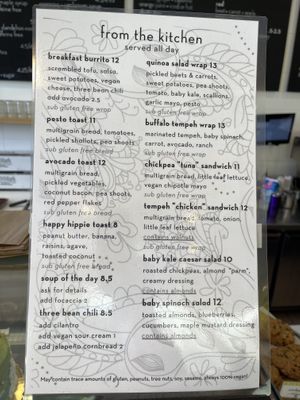 from the kitchen
served all day
breakfast burrito 12
scrambled tofu, salsa,
sweet potatoes, vegan
cheese, three bean chili
add avocado 2.5
sub gluten free wrap
pesto toast 11
multigrain bread, tomatoes,
pickled shallots, pea shoots
sub gluten free bread
avocado toast 12
multigrain bread,
pickled vegetables,
coconut bacon, pea shoots,
red pepper flakes
sub gluten free bread
happy hippie toast 8
peanut butter, banana,
raisins, agave,
toasted coconut
sub gluten free bread
soup of the day 8.5
ask for details
add focaccia 2
three bean chili 8.5
add cilantro
add vegan sour cream 1
add jalapeño cornbread 2
quinoa salad wrap 13
pickled beets & carrots,
sweet potatoes, pea shoots,
tomato, baby kale, scallions,
garlic mayo, pesto
sub gluten free wrap
buffalo tempeh wrap 13
marinated tempeh, baby spinach,
carrot, avocado, ranch
sub gluten free wrap
chickpea "tuna" sandwich 11
multigrain bread, little leaf lettuce,
vegan chipotle mayo
sub gluten free wrap
tempeh "chicken" sandwich 12
multigrain bread, tomato, onion,
little leaf lettuce
contains walnuts
sub gluten free wrap
baby kale caesar salad 10
roasted chickpeas, almond "parm",
creamy dressing
contains almonds
baby spinach salad 12
toasted almonds, blueberries,
cucumbers, maple mustard dressing
contains almonds
May contain trace amounts of gluten, peanuts, tree nuts, soy, sesame, always 100% vegan!